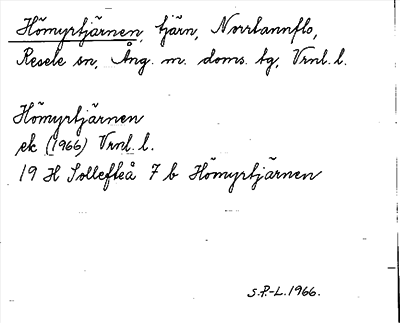 Hömyrtjärnen, tjärn, Norrtannflo,
Resele sn, Ång. m. doms. tg, Vrnl. l.
Hömyrtjärnen
ek (1966) Vrnl. l.
19 H Sollefteå 7 b Hömyrtjärnen
S.P.-L. 1966.